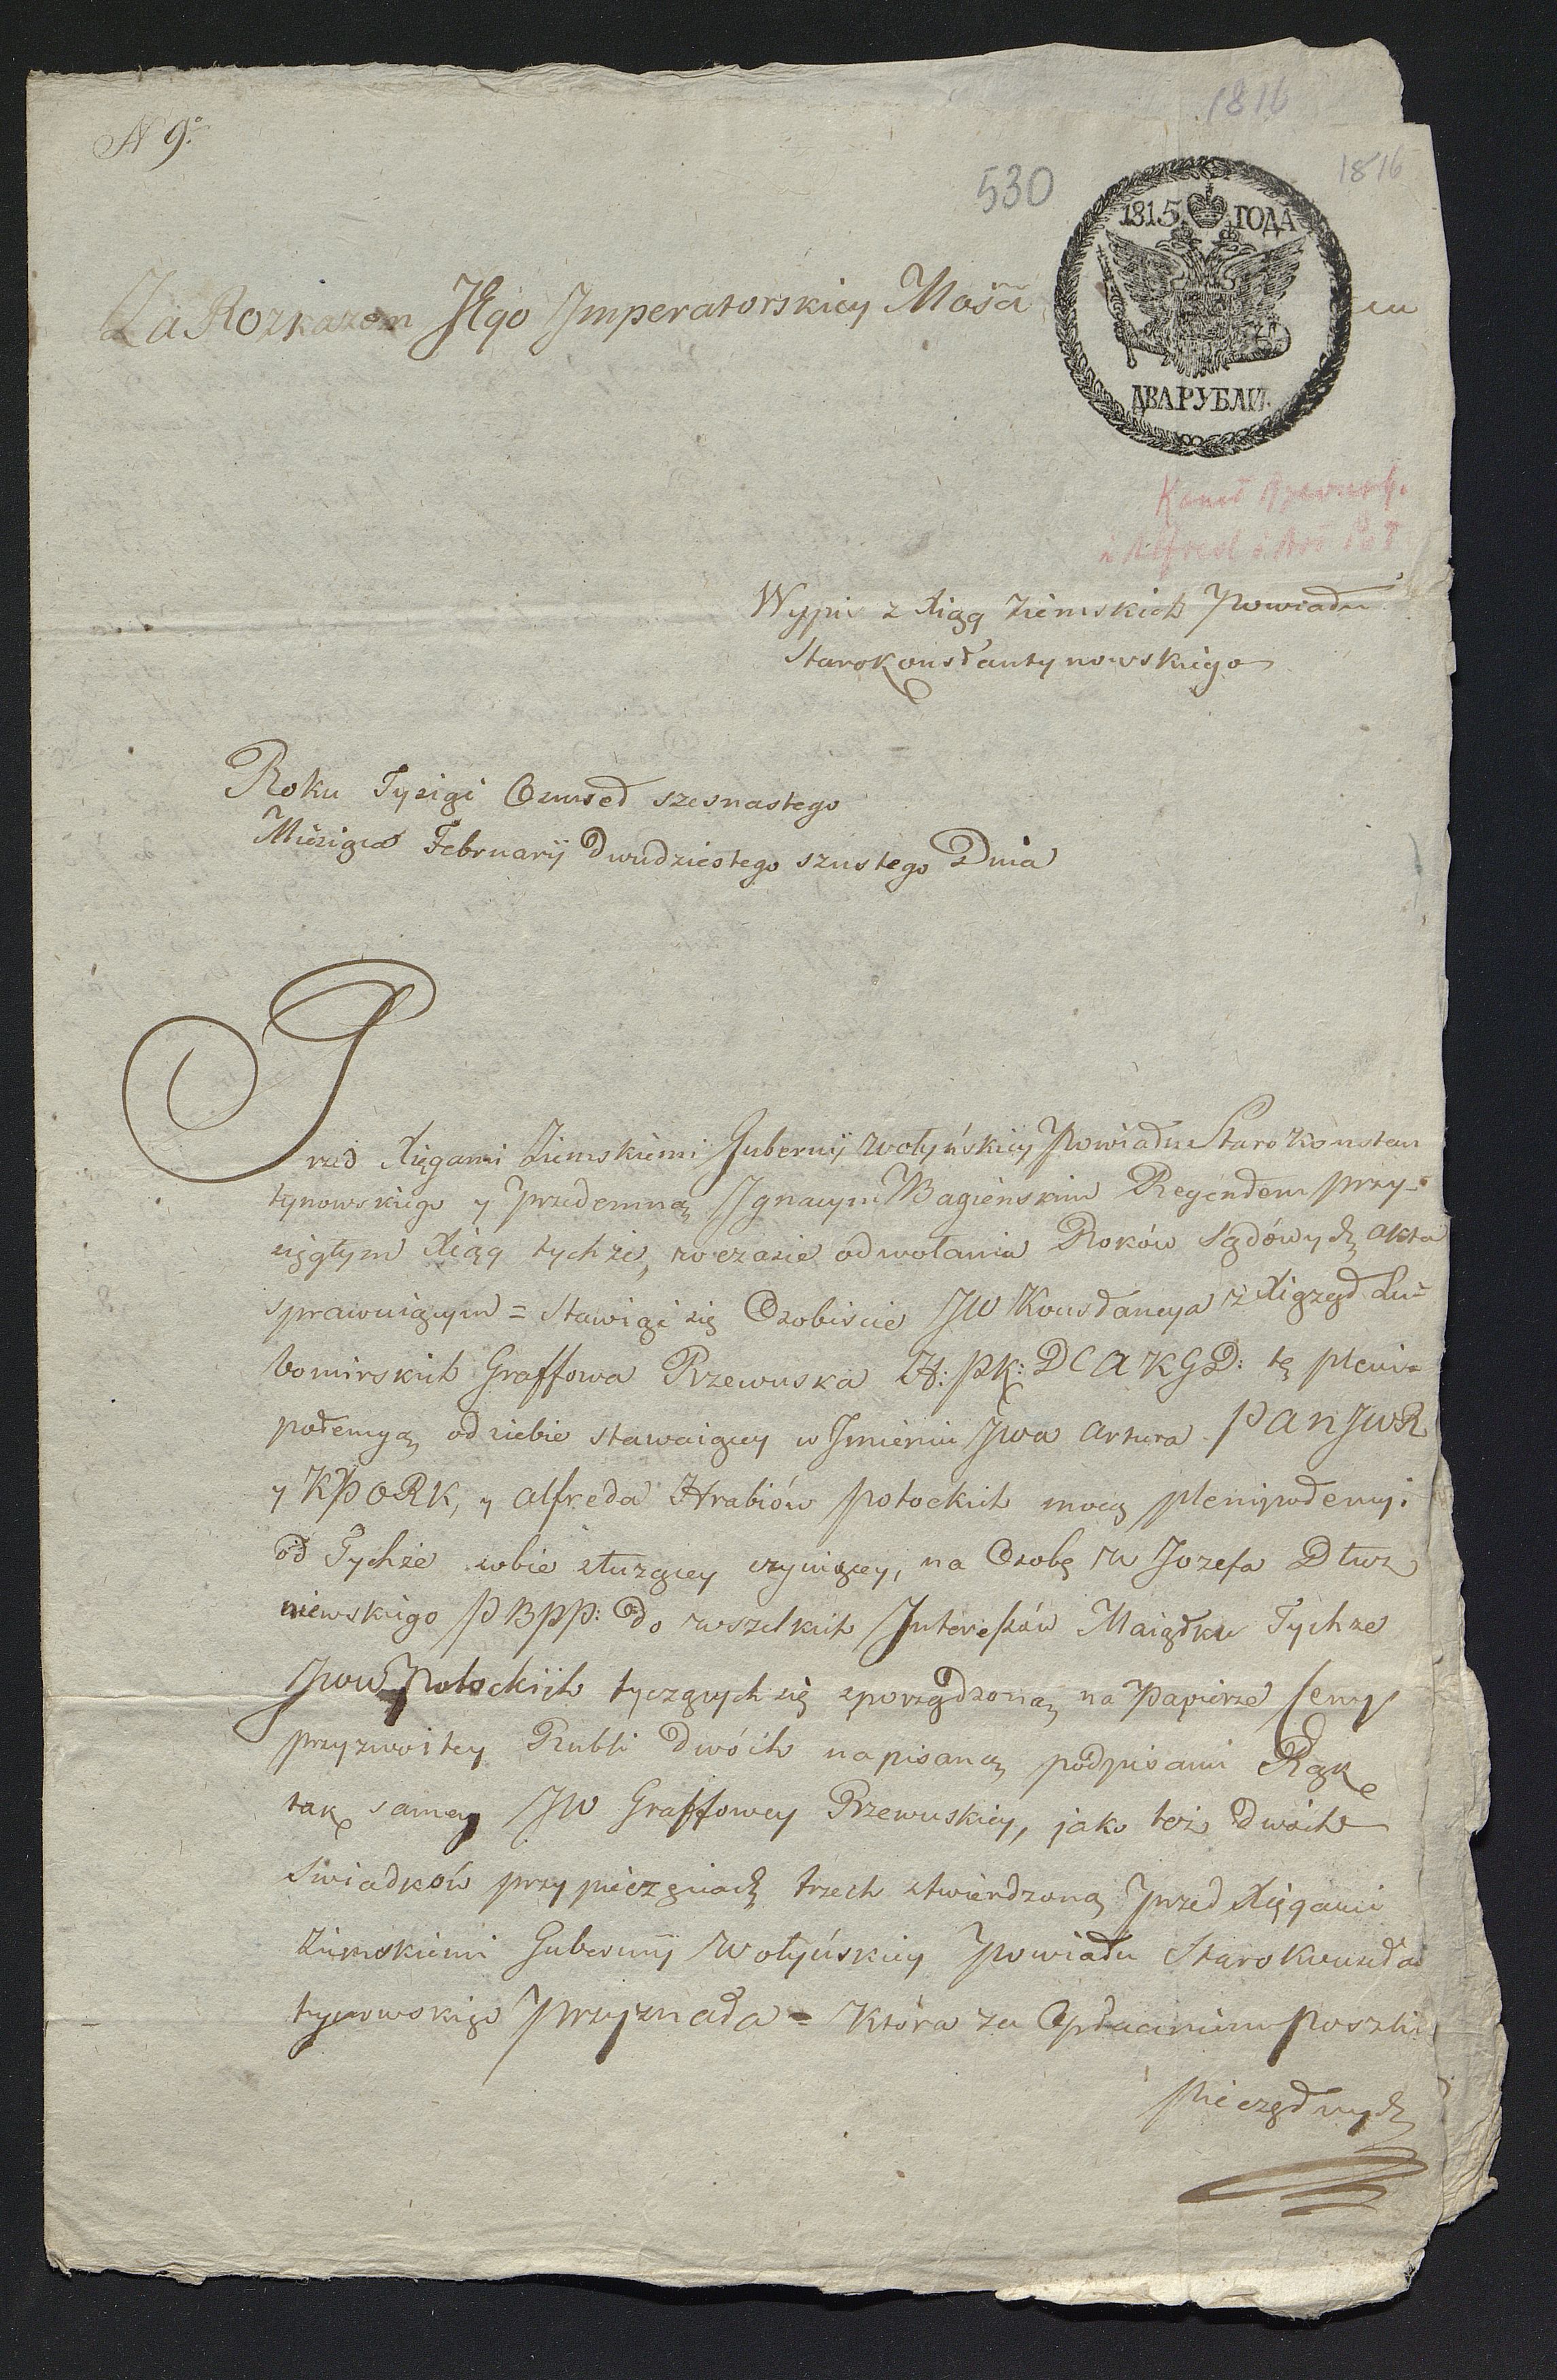 N 9º
1816
1816
530
1815 ГОДА
ДВА РУБЛИ
Za Rozkazem JEgo Imperatorskiey Mośći
Wypis z Xiąg Ziemskich Powiadu
Starokonstantynowskiego
Roku Tysiąc Osmset szesnastego
Miesiąca Februarij Dwudziestego szustego Dnia
Przed Xięgami Ziemskiemi Gubernij Wołyńskiey Powiadu Starokonstan
tynowskiego y przedemną Ignacym Bagieńskim Regendem przy-
sięgłym Xiąg tychże, w czasie odwołania Roków Sądówych akta
sprawuiącym = Stawiąć się Osobiscie JW Konstancya z Xiążąt Lu-
bomirskich Graffowa Rzewuska H: PK: DCAKGD: tę pleni-
potencyą od siebie stawaiącey w Imieniu JWa Artura PANJWR
y KPORK, y Alfreda Hrabiów Potockich mocą plenipotencyi
od Tychże sobie służącey czyniącey, na Osobę W Jozefa Dłuż
niewskiego PBPP: do wszelkich Interessów Maiątku Tychże
JWW Potockich tyczących się sporządzoną na Papierze Ceny
przyzwoitey Rubli Dwóch napisaną podpisami Rąk
tak samey JW Graffowey Rzewuskiey, jako też Dwóch
Swiadków przy pieczęciach trzech stwierdzoną przed Xięgami
Ziemskiemi Gubernij Wołyńskiey Powiadu Starokonstan
tynowskiego Przyznała = Która za Opłaceniem Poszlin
Pieczętnych